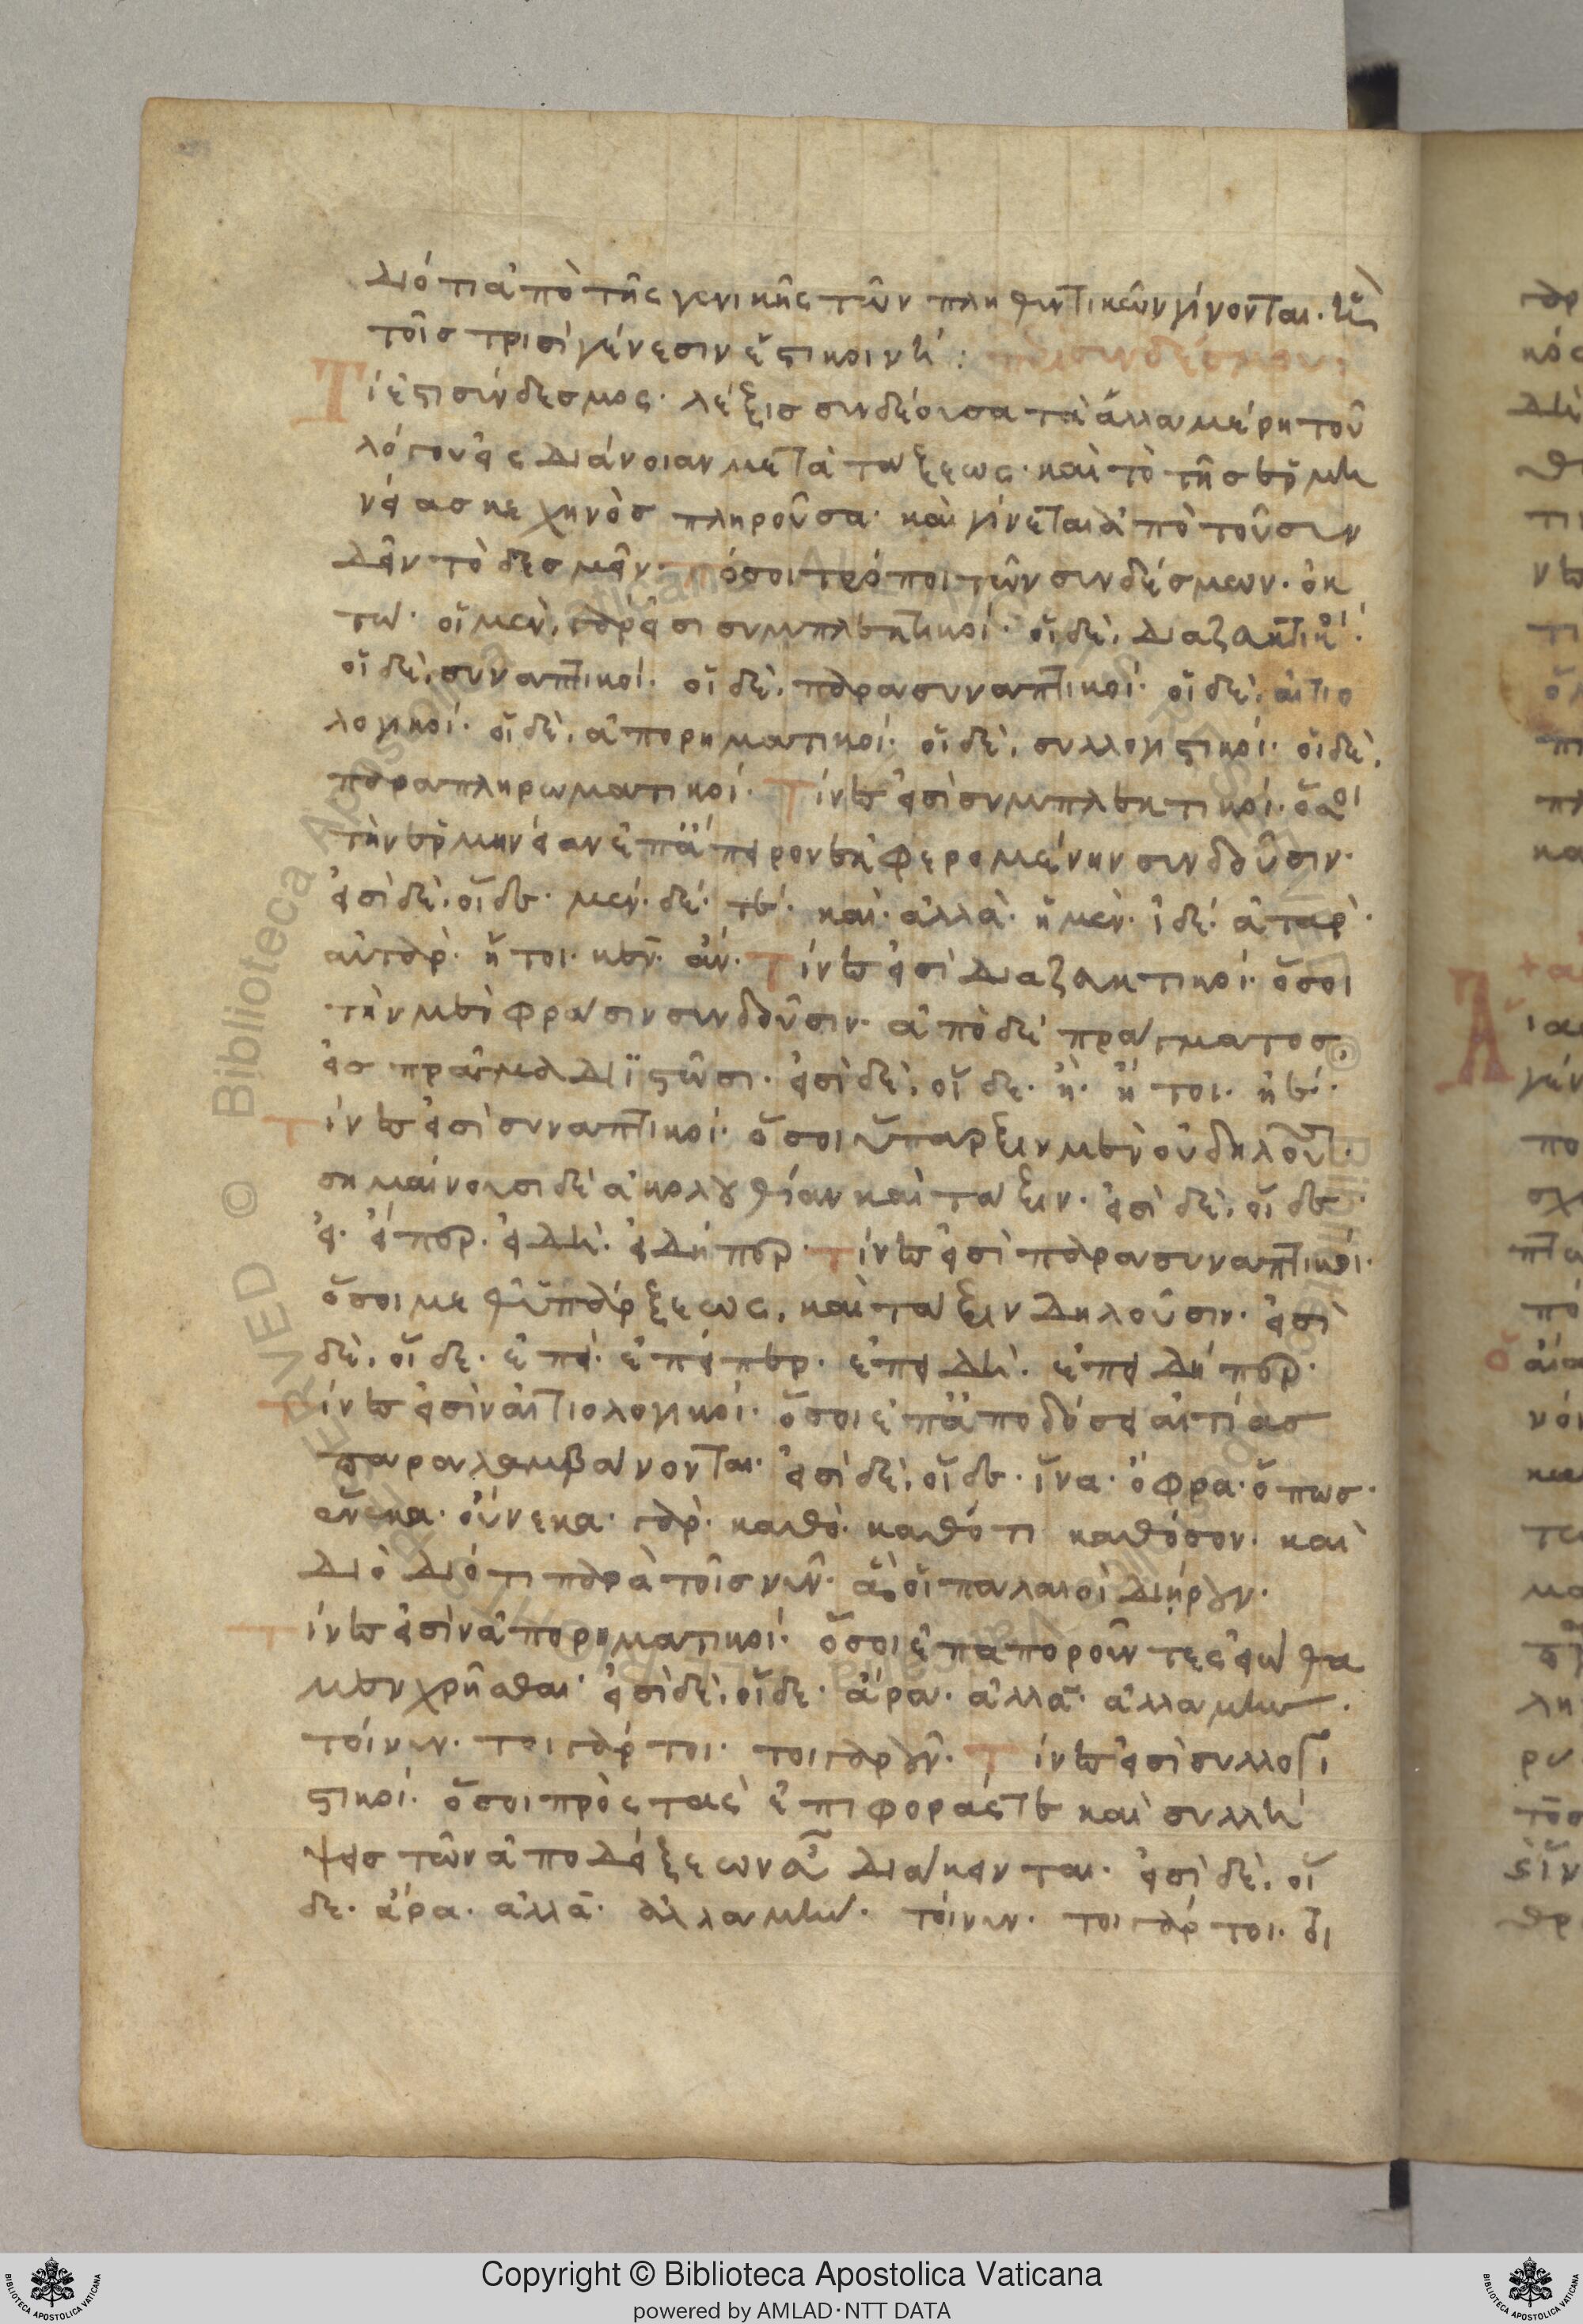 διότι ἀπὸ τῆς γενικῆς τῶν πληθυντικῶν γίνονται. καὶ
τοῖσ τρισὶ γένεσιν ἔστι κοινή: περὶ συνδέσμου:
Τί ἐστι σύνδεσμος· λέξισ συνδέουσα τὰ ἄλλα μέρη τοῦ
λόγου εἰς διάνοιαν μετὰ τάξεως· καὶ τὸ τῆσ ἑρμη
νείασ κεχηνὸσ πληροῦσα· καὶ γίνεται ἀπὸ τοῦ συν
δεῖν τὸ δεσμεῖν· πόσοι τρόποι τῶν συνδέσμων· ὀκ
τώ· οἵ μεν, γάρ εἰσι συμπλεκτικοί· οἵ δὲ, διαζευκτικοί·
οἵ δὲ, συναπτικοί· οἵ δὲ, παρασυναπτικοί· οἵ δὲ, αἰτιο
λογικοί· οἵ δὲ, ἀπορηματικοί· οἵ δὲ, συλλογιστικοί· οἵ δὲ,
παραπληρωματικοί· Τίνες εἰσὶ συμπλεκτικοί· ὅσοι
τὴν ἑρμηνείαν ἐπ' ἄπειρον ἐκφερομένην συνδέουσιν·
εἰσὶ δὲ, οἵδε· μέν· δέ· τέ· καί· ἀλλὰ· ἠμὲν· ἰδέ· ἀτὰρ·
αὐτὰρ· ἤτοι· κεν· ἄν· Τίνες εἰσὶ διαζευκτικοί· ὅσοι
τὴν μὲν φράσιν συνδέουσιν· ἀπὸ δὲ πράγματοσ,
εἰσ πρᾶγμα διϊστῶσι· εἰσὶ δὲ, οἵ δε· ἢ· ἤτοι· ἠέ·
Τίνες εἰσὶ συναπτικοί· ὅσοι ὕπαρξιν μὲν οὐ δηλοῦσι·
σημαίνουσι δὲ ἀκολουθίαν καὶ τάξιν· εἰσὶ δὲ, οἵ δε·
εἰ· εἴπερ· εἰδή· εἰδήπερ· Τίνες εἰσὶ παρασυναπτικοί·
ὅσοι μεθ' ὑπάρξεως, καὶ τάξιν δηλοῦσιν· εἰσὶ
δὲ, οἵ δε· ἐπεί· ἐπείπερ· ἐπειδή· ἐπειδήπερ·
Τίνες εἰσὶν αἰτιολογικοί· ὅσοι ἐπ' ἀποδόσει αἰτίασ
παραλαμβάνονται· εἰσὶ δὲ, οἵδε· ἵνα· ὄφρα· ὅπωσ·
ἕνεκα· οὕνεκα· γὰρ· καθὸ· καθότι καθόσον· καὶ
διὸ διότι παρὰ τοῖσ νῦν· ἃ οἱ παλαιοὶ διῄρουν·
Τίνες εἰσὶν ἀπορηματικοί· ὅσοι ἐπαποροῦντες εἰώθα
μεν χρῆσθαι· εἰσὶ δὲ, οἵδε· ἆρα· ἀλλά· ἀλλαμὴν·
τοίνυν· τοιγάρτοι· τοιγαροῦν· Τίνες εἰσὶ συλλογι
στικοί· ὅσοι πρὸς τὰς ἐπιφοράς τε καὶ συλλή
ψεισ τῶν ἀποδείξεων εὖ διάκεινται· εἰσὶ δὲ, οἵ
δε· ἄρα· ἀλλὰ· ἀλλαμὴν· τοίνυν· τοιγάρτοι·
Copyright © Biblioteca Apostolica Vaticana
powered by AMLAD·NTT DATA